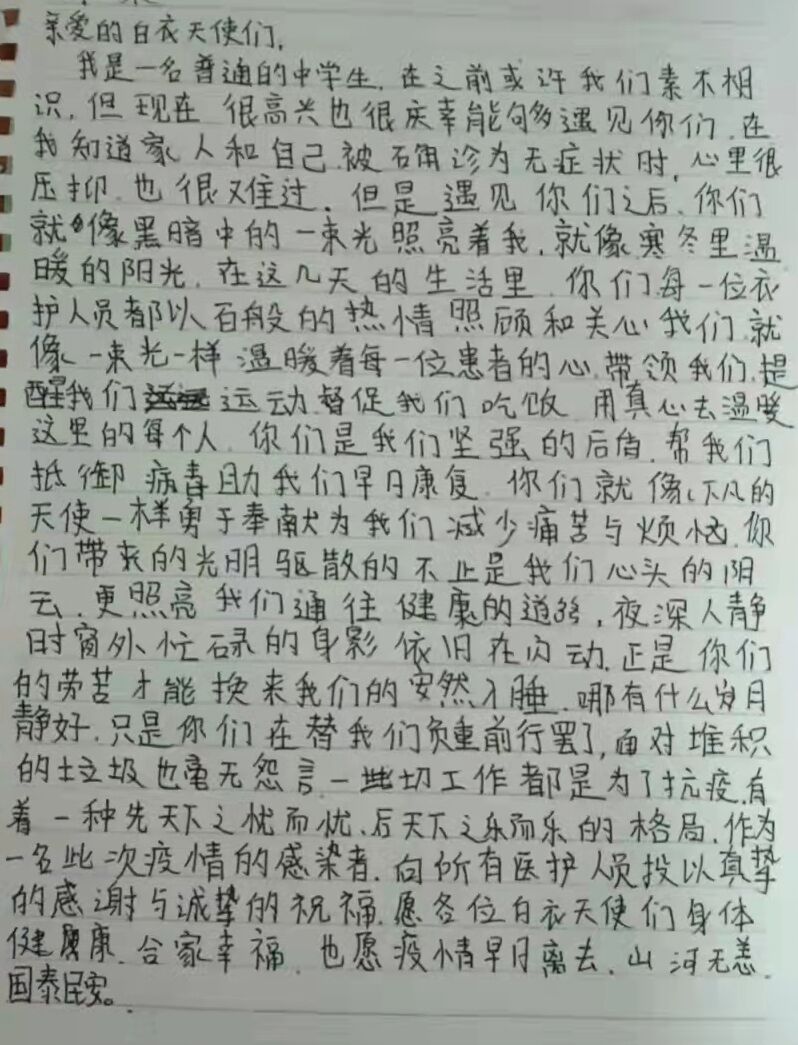 亲爱的白衣天使们,
我是一名普通的中学生,在之前或许我们素不相
识,但现在 很高兴也很庆幸能够遇见你们,在
我知道家人和自己被确诊为无症状时,心里很
压抑,也很难过,但是遇见你们之后,你们
就像黑暗中的一束光照亮着我,就像寒冬里温
暖的阳光,在这几天的生活里,你们每一位衣
护人员都以百般的热情照顾和关心我们,就
像一束光一样温暖着每一位患者的心,带领我们,提
醒我们运动,督促我们吃饭,用真心去温暖
这里的每个人,你们是我们坚强的后盾,帮我们
抵御病毒助我们早日康复,你们就像下凡的
天使一样勇于奉献为我们减少痛苦与烦恼,你
们带来的光明驱散的不止是我们心头的阴
云,更照亮我们通往健康的道路,夜深人静
时窗外忙碌的身影依旧在闪动,正是你们
的劳苦才能换来我们的安然入睡,哪有什么岁月
静好,只是你们在替我们负重前行罢了,面对堆积
的垃圾也毫无怨言,一些切工作都是为了抗疫,有
着一种先天下之忧而忧,后天下之乐而乐的格局,作为
一名此次疫情的感染者,向所有医护人员投以真挚
的感谢与诚挚的祝福,愿各位白衣天使们身体
健康,合家幸福,也愿疫情早日离去,山河无恙,
国泰民安。